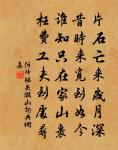 片石亡来歲月深
昔時来覓到如今
誰知只在家山裏
枉費工夫別處尋